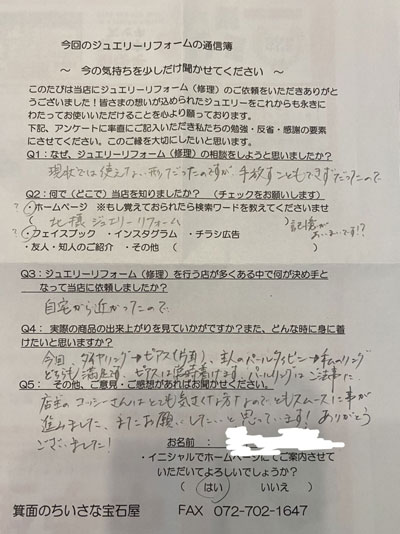 今回のジュエリーリフォームの通信簿
～ 今の気持ちを少しだけ聞かせてください ～
このたびは当店にジュエリーリフォーム（修理）のご依頼をいただきありがとう
うございました！皆さまの想いが込められたジュエリーをこれからも永きに
わたってお使いいただけることを心より願っております。
下記、アンケートに率直にご記入いただき私たちの勉強・反省・感謝の要素
にさせてください。このご縁を大切にしたいと思います。
Q1：なぜ、ジュエリーリフォーム（修理）の相談をしようと思いましたか？
現状では使えない形だったのですが、手放すこともできずだったので
Q2：何で（どこで）当店を知りましたか？ （チェックをお願いします）
？・ホームページ ※もし覚えておられたら検索ワードを教えてくださいませ
（地域 ジュエリーリフォーム ）記憶が
？・フェイスブック ・インスタグラム ・チラシ広告 あいまいです!?
・友人・知人のご紹介 ・その他（ ）
Q3：ジュエリーリフォーム（修理）を行う店が多くある中で何が決め手と
なって当店に依頼しましたか？
自宅から近かったので
Q4： 実際の商品の出来上がりを見ていかがですか？また、どんな時に身に着
けたいと思いますか？
今回、ダイヤリング→ピアス（片耳）、主人のパールタイピン→私のリング
どちらも満足です。ピアスは常時着けます。パールリングはご法事に
Q5： その他、ご意見・ご感想があればお聞かせください。
店主のコッシーさんはとても気さくな方なのでともスムーズに事が
進みました。またお願いしたいと思っています！ありがとう
ございました！
お名前：
・イニシャルでホームページにてご案内させて
いただいてよろしいでしょうか？
（ はい いいえ ）
箕面のちいさな宝石屋 FAX 072-702-1647